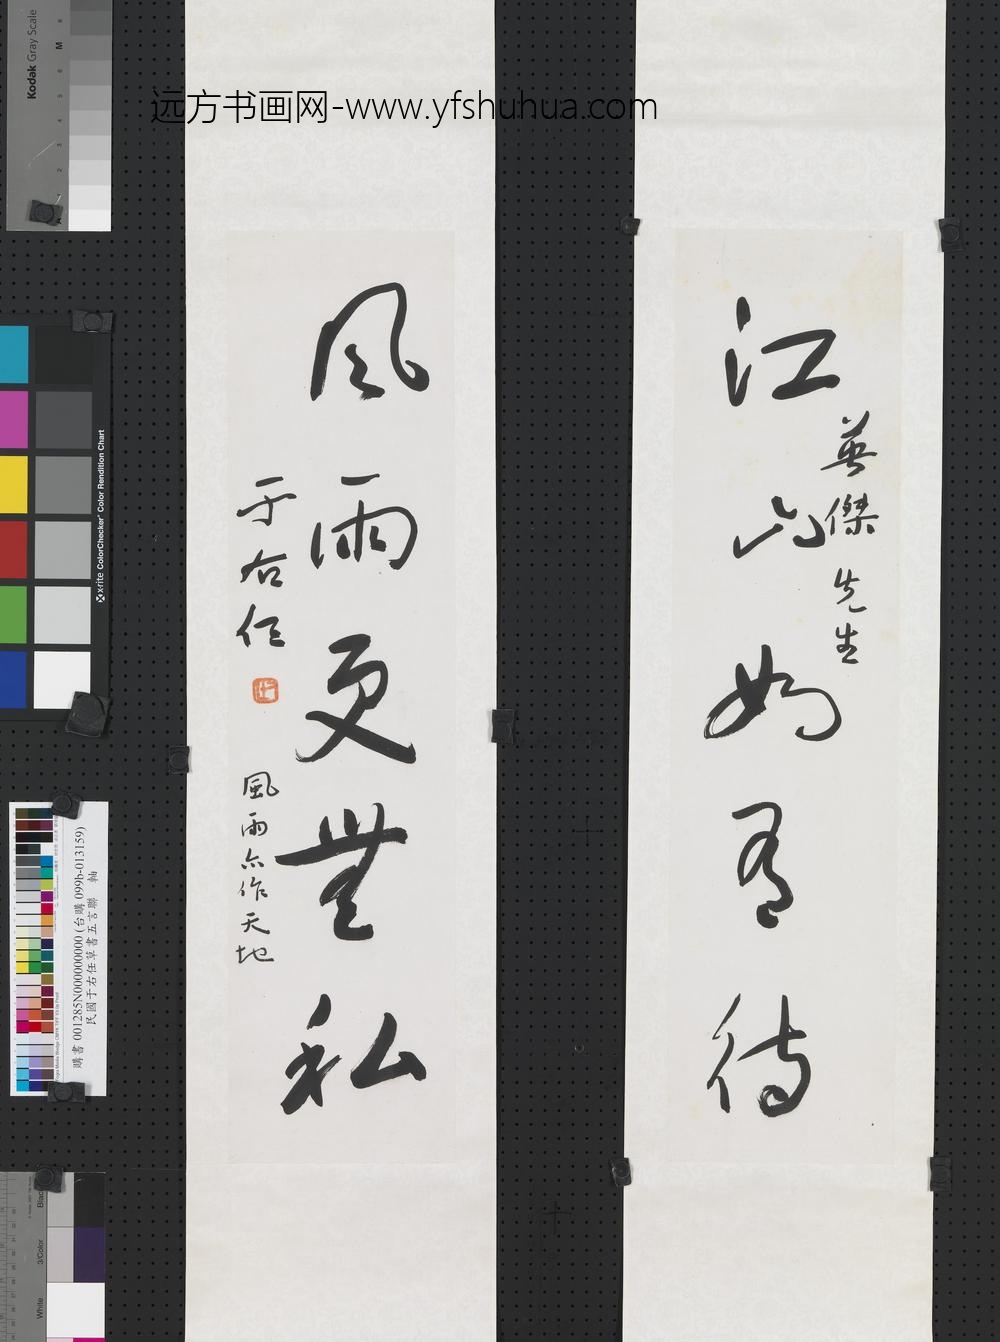 远方书画网-www.yfshuhua.com
江山如有待
英傑先生
風雨更無私
于右任
風雨亦作天地
Kodak Gray Scale
x-rite ColorChecker® Color Rendition Chart
購書 001285N000000000 (台購 099b-013159)
民國于右任草書五言聯 軸
Black
3/Color
White